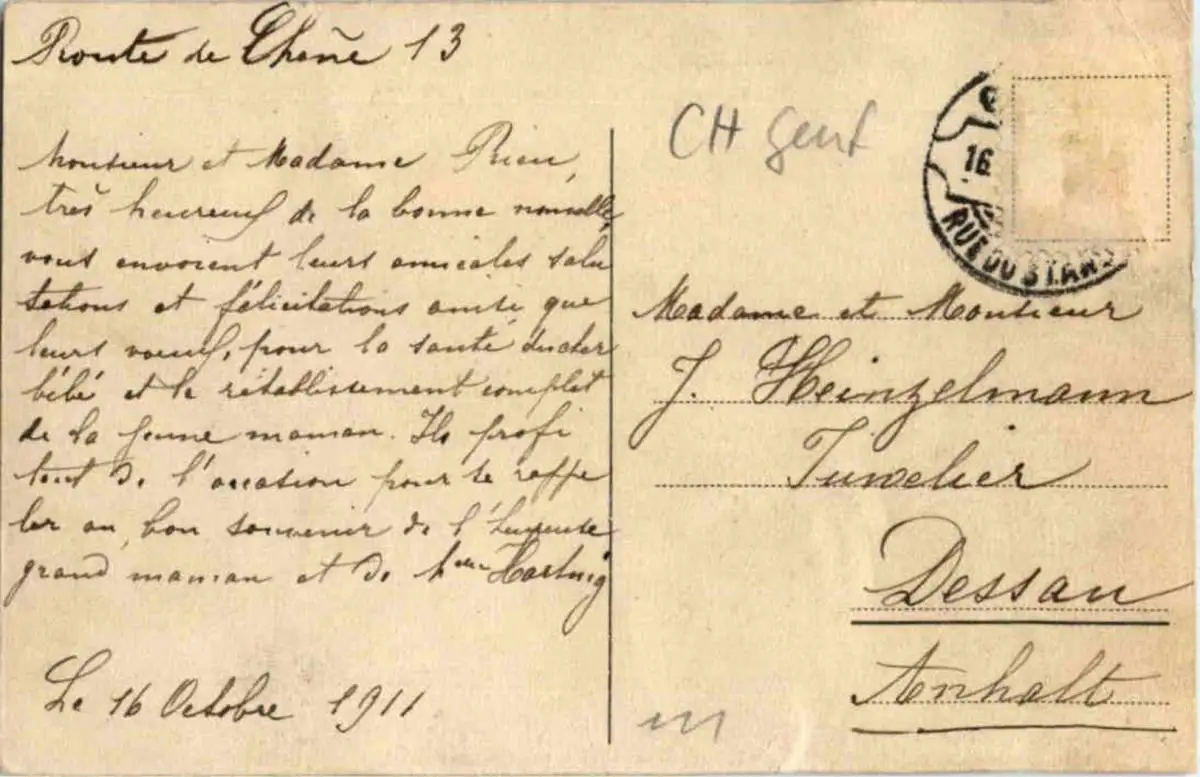 Route de Chêne 13
Monsieur et Madame Rieu,
très heureux de la bonne nouvelle,
vous envoient leurs amicales salu
tations et félicitations ainsi que
leurs voeux, pour la santé du cher
bébé et le rétablissement complet
de la jeune maman. Ils profi
tent de l'occasion pour se rappe
ler au bon souvenir de l'heureuse
grand maman et de Mme Hartwig
Le 16 Octobre 1911
CH Genf
16.
RUE DU STAND
Madame et Monsieur
J. Heinzelmann
Juwelier
Dessau
Anhalt